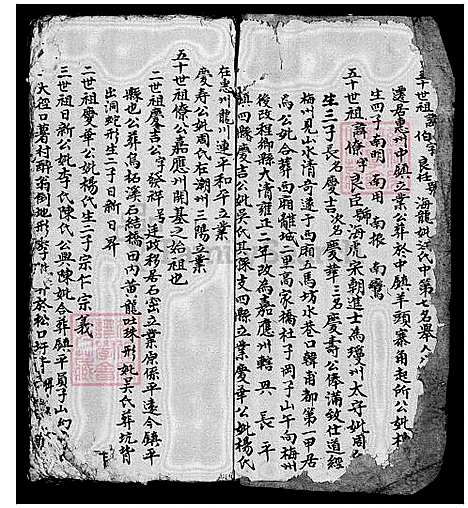 世祖諱 伯 字良任 號海龍妣洪氏中第七名舉人
遷居惠州中鎮立業公葬於中鎮羊頭寨角起所公妣
生四子南明 南用 南振 南鸞
五十世祖諱條字良臣號海虎宋朝進士為瓊州太守妣周
生三子長名慶吉 次名慶華 三名慶壽公俸滿致仕道經
梅州見山水清奇遂于西廂五馬坊水巷口韓甫都第一甲居
焉公妣合葬西廂離城二里高家橋社子岡子山午向梅州
後改程鄉縣大清雍正二年改為嘉應州轄 興 長 平
鎮四縣慶吉公妣吳氏其傳支四縣立業慶華公妣楊氏
在惠州龍川連平和平立業
慶壽公妣周氏在潮州三陽立業
五十世祖條公嘉應州開基之始祖也
二世祖慶吉公字發祥 號廷政移居石窟立業原係平遠今鎮平
縣也公葬馬柘溪石結橋田內黃龍吐珠形妣吳氏葬坑背
出洞蛇形生二子日新日昇
二世祖慶華公妣楊氏生二子宗仁宗義
三世祖日新公妣李氏陳氏公與陳妣合葬鎮平員子山
大徑口署村醉翁倒地形李 於松口